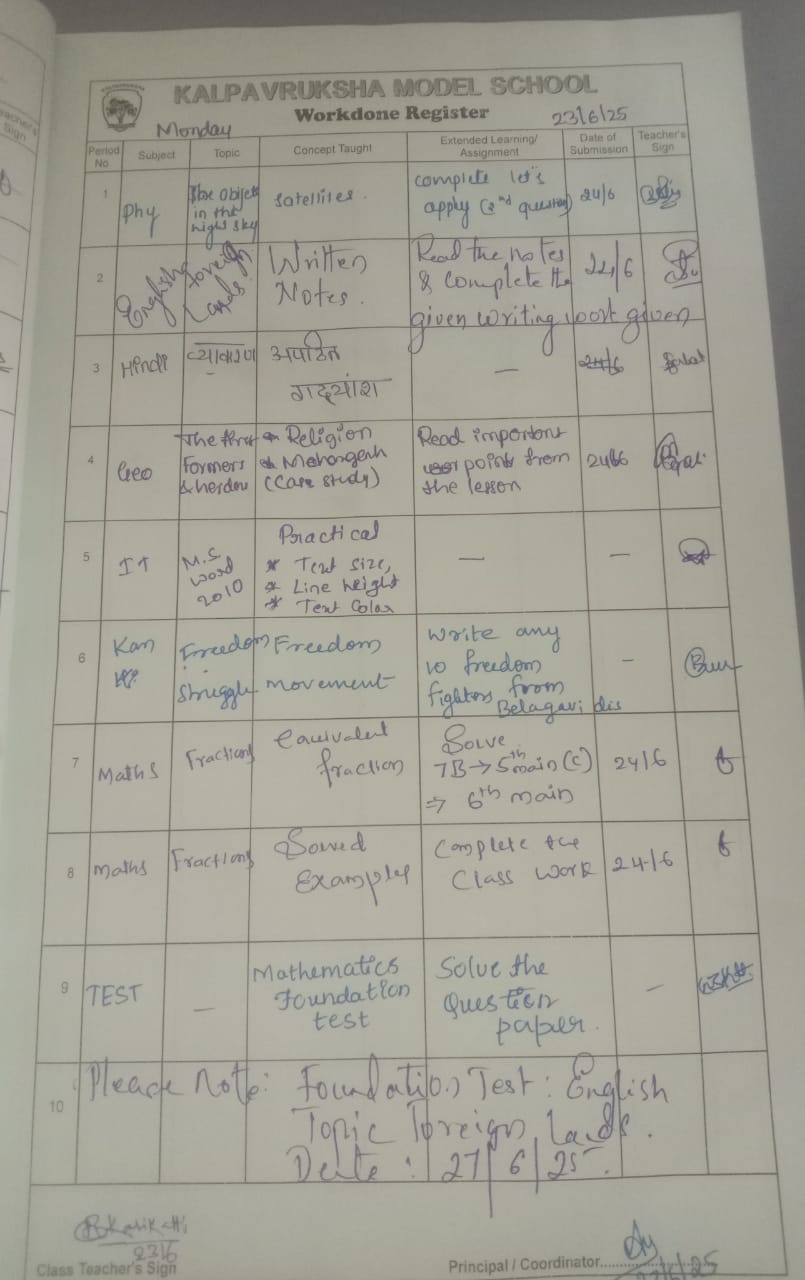 KALPAVRUKSHA MODEL SCHOOL
Workdone Register
Monday
23/6/25
Period No Subject Topic Concept Taught Extended Learning/ Assignment Date of Submission Teacher's Sign
1 Phy The Objects in the night sky satellites. complete let's apply (2nd question) 24/6
2 English Foreign Lands. Written Notes. Read the notes & complete the given writing given
3 Hindi व्याकरण अपठित गद्यांश — 24/6
4 Geo The first Farmers & herders Religion Mehangarh (Case study) Read important points from the lesson 24/6
5 IT M.S Word 2010 Practical
* Text size,
* Line height
* Text Color — —
6 Kan Freedom struggle Freedom movement Write any 10 freedom fighters from Belagavi dis —
7 Maths Fractions Equivalent fraction Solve 7B → 5th main (c) ⇒ 6th main 24/6
8 Maths Fractions Solved Examples Complete the Class work 24/6
9 TEST — Mathematics Foundation test Solve the Question paper. —
10 Please Note: Foundation Test: English
Topic Foreign Lands.
Date: 27/6/25.
23/6
Class Teacher's Sign
Principal / Coordinator